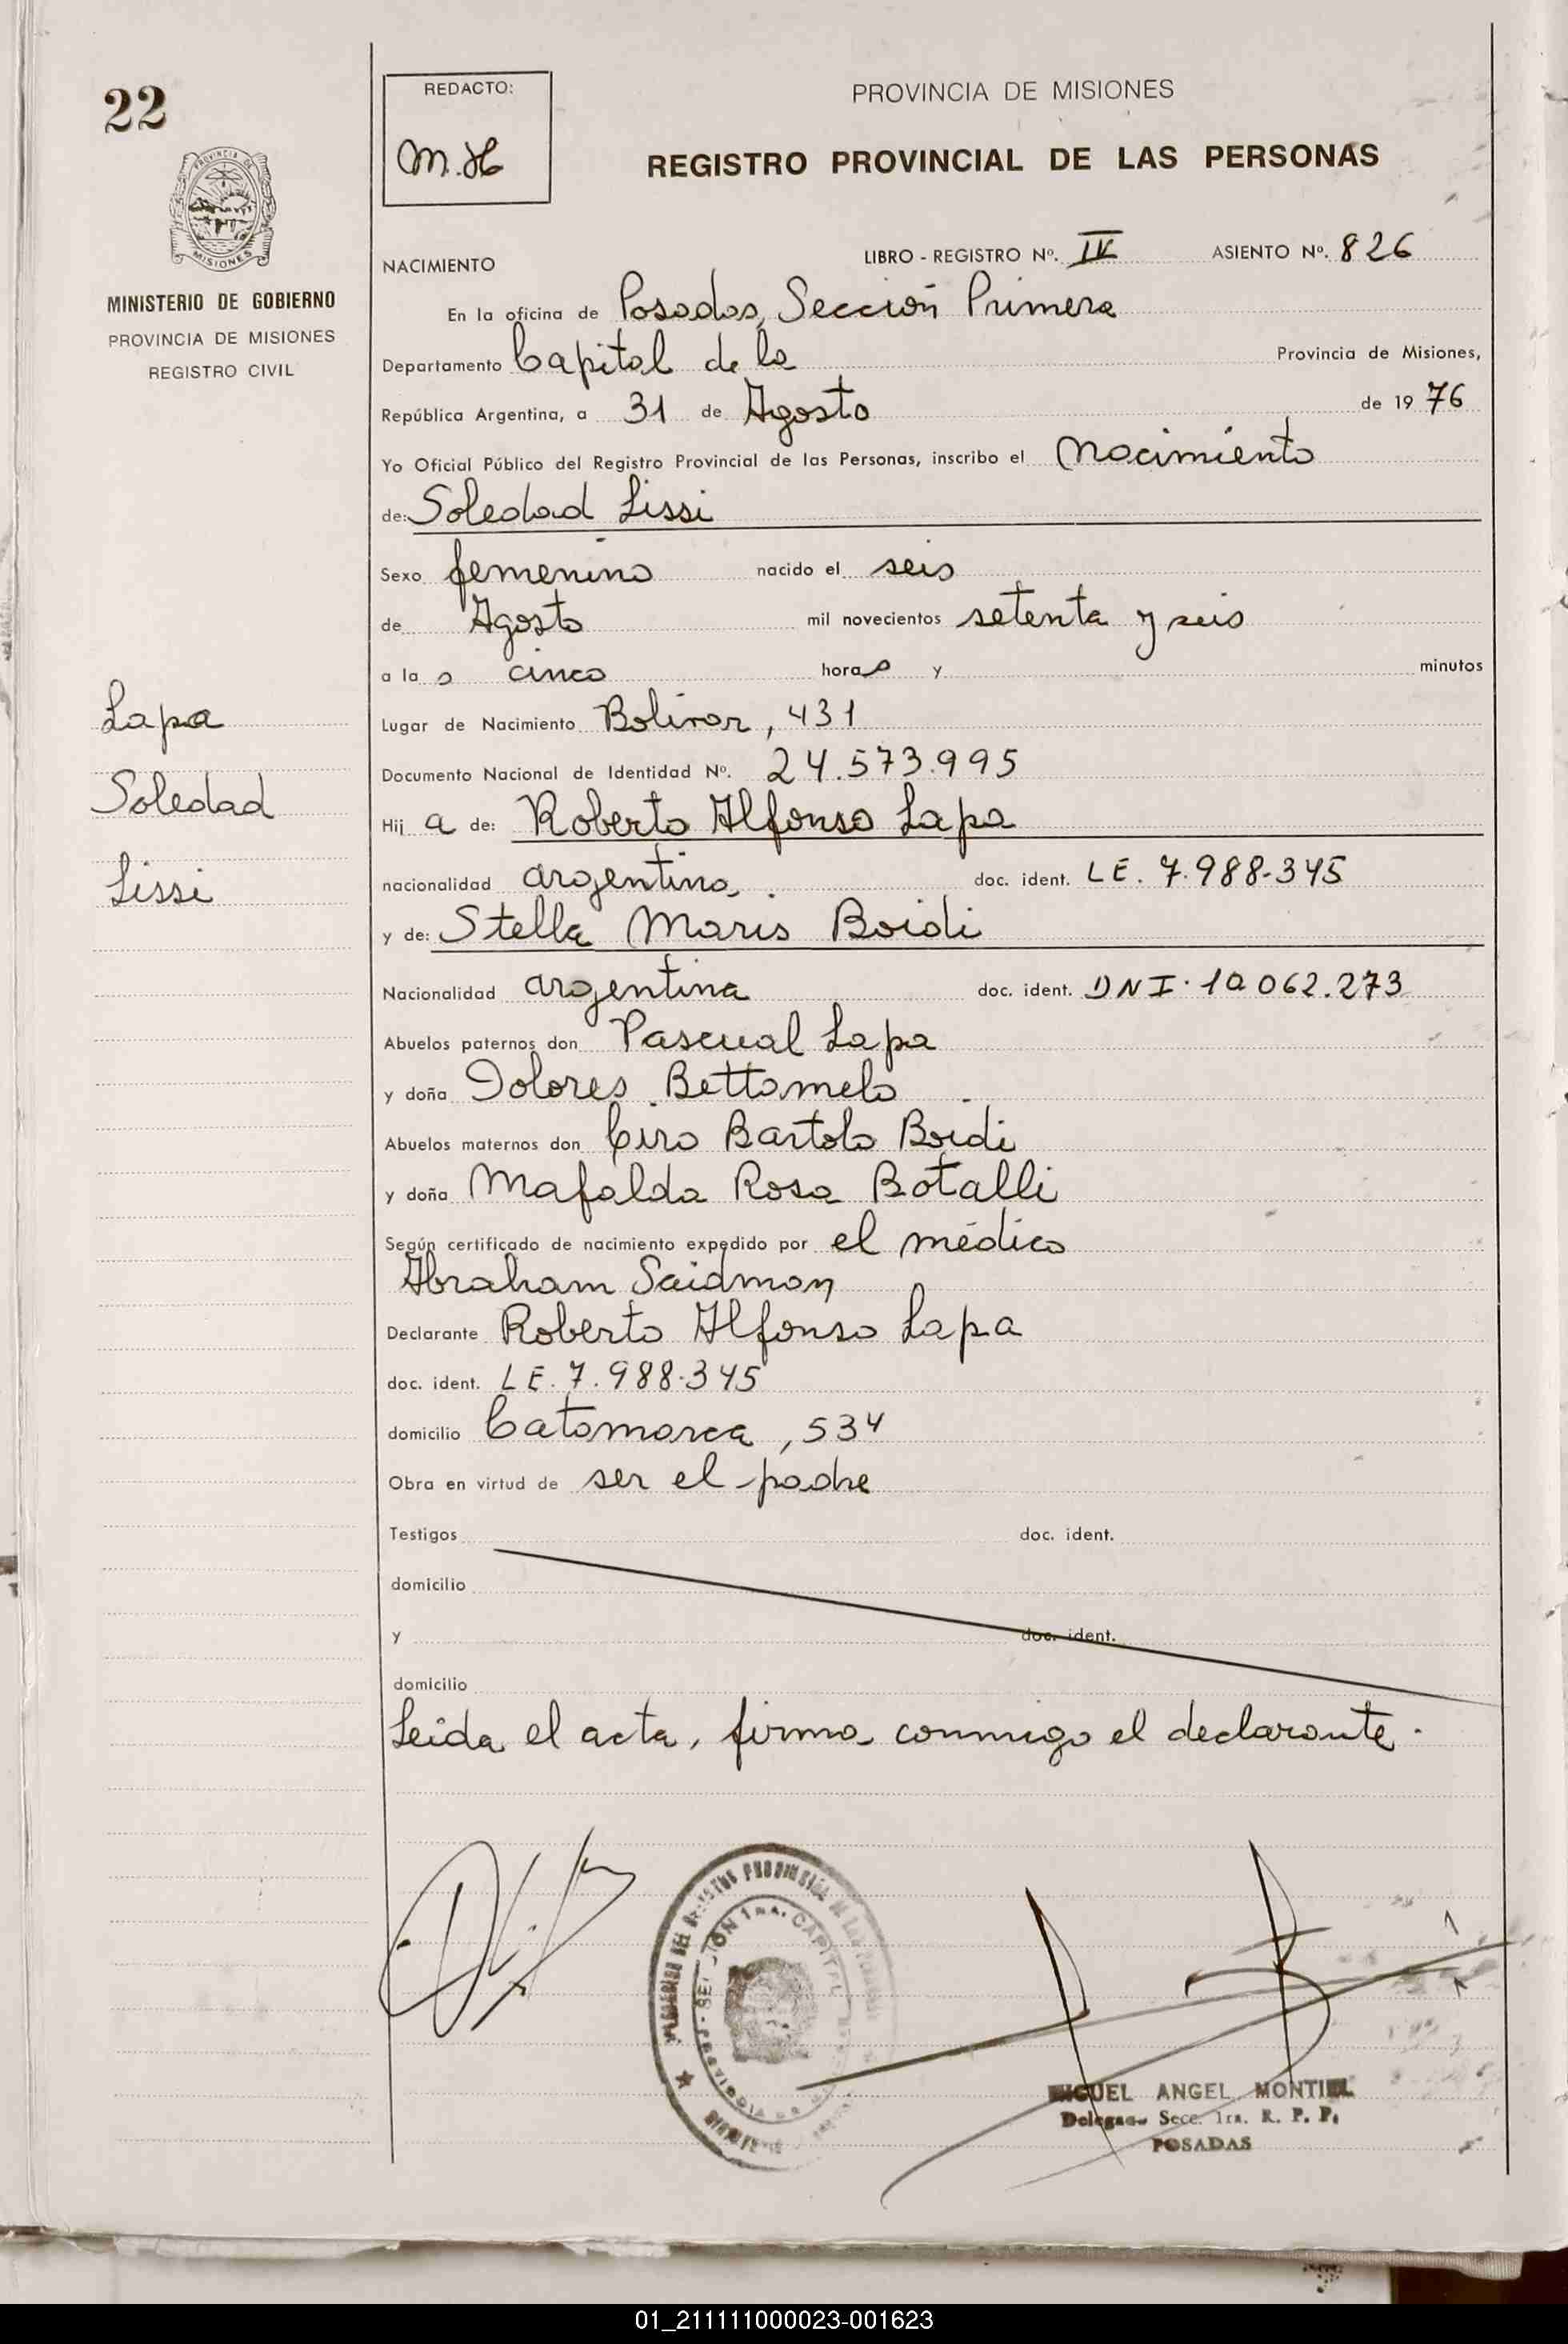 22
REDACTO:
M.H
PROVINCIA DE MISIONES
REGISTRO PROVINCIAL DE LAS PERSONAS
PROVINCIA DE
MISIONES
MINISTERIO DE GOBIERNO
PROVINCIA DE MISIONES
REGISTRO CIVIL
NACIMIENTO LIBRO - REGISTRO Nº. IV ASIENTO Nº. 826
En la oficina de Posadas, Sección Primera
Departamento Capital de la Provincia de Misiones,
República Argentina, a 31 de Agosto de 1976
Yo Oficial Público del Registro Provincial de las Personas, inscribo el Nacimiento
de: Soledad Lissi
Sexo femenino nacido el seis
de Agosto mil novecientos setenta y seis
a las cinco horas y minutos
Lugar de Nacimiento Bolivar, 431
Documento Nacional de Identidad Nº. 24.573.995
Hija de: Roberto Alfonso Lapa
nacionalidad argentina, doc. ident. LE. 7.988.345
y de: Stella Maris Boidi
Nacionalidad argentina doc. ident. DNI. 10.062.273
Abuelos paternos don Pascual Lapa
y doña Dolores Bettamelo
Abuelos maternos don Ciro Bartolo Boidi
y doña Mafalda Rosa Botalli
Según certificado de nacimiento expedido por el médico
Abraham Saidman
Declarante Roberto Alfonso Lapa
doc. ident. LE. 7.988.345
domicilio Catamarca, 534
Obra en virtud de ser el padre
Testigos doc. ident.
domicilio
y doc. ident.
domicilio
Leida el acta, firma conmigo el declarante.
Lapa
Soledad
Lissi
SECCION 1ra. CAPITAL
MIGUEL ANGEL MONTIEL
Delegado Secc. 1ra. R. P. P.
POSADAS
01_211111000023-001623